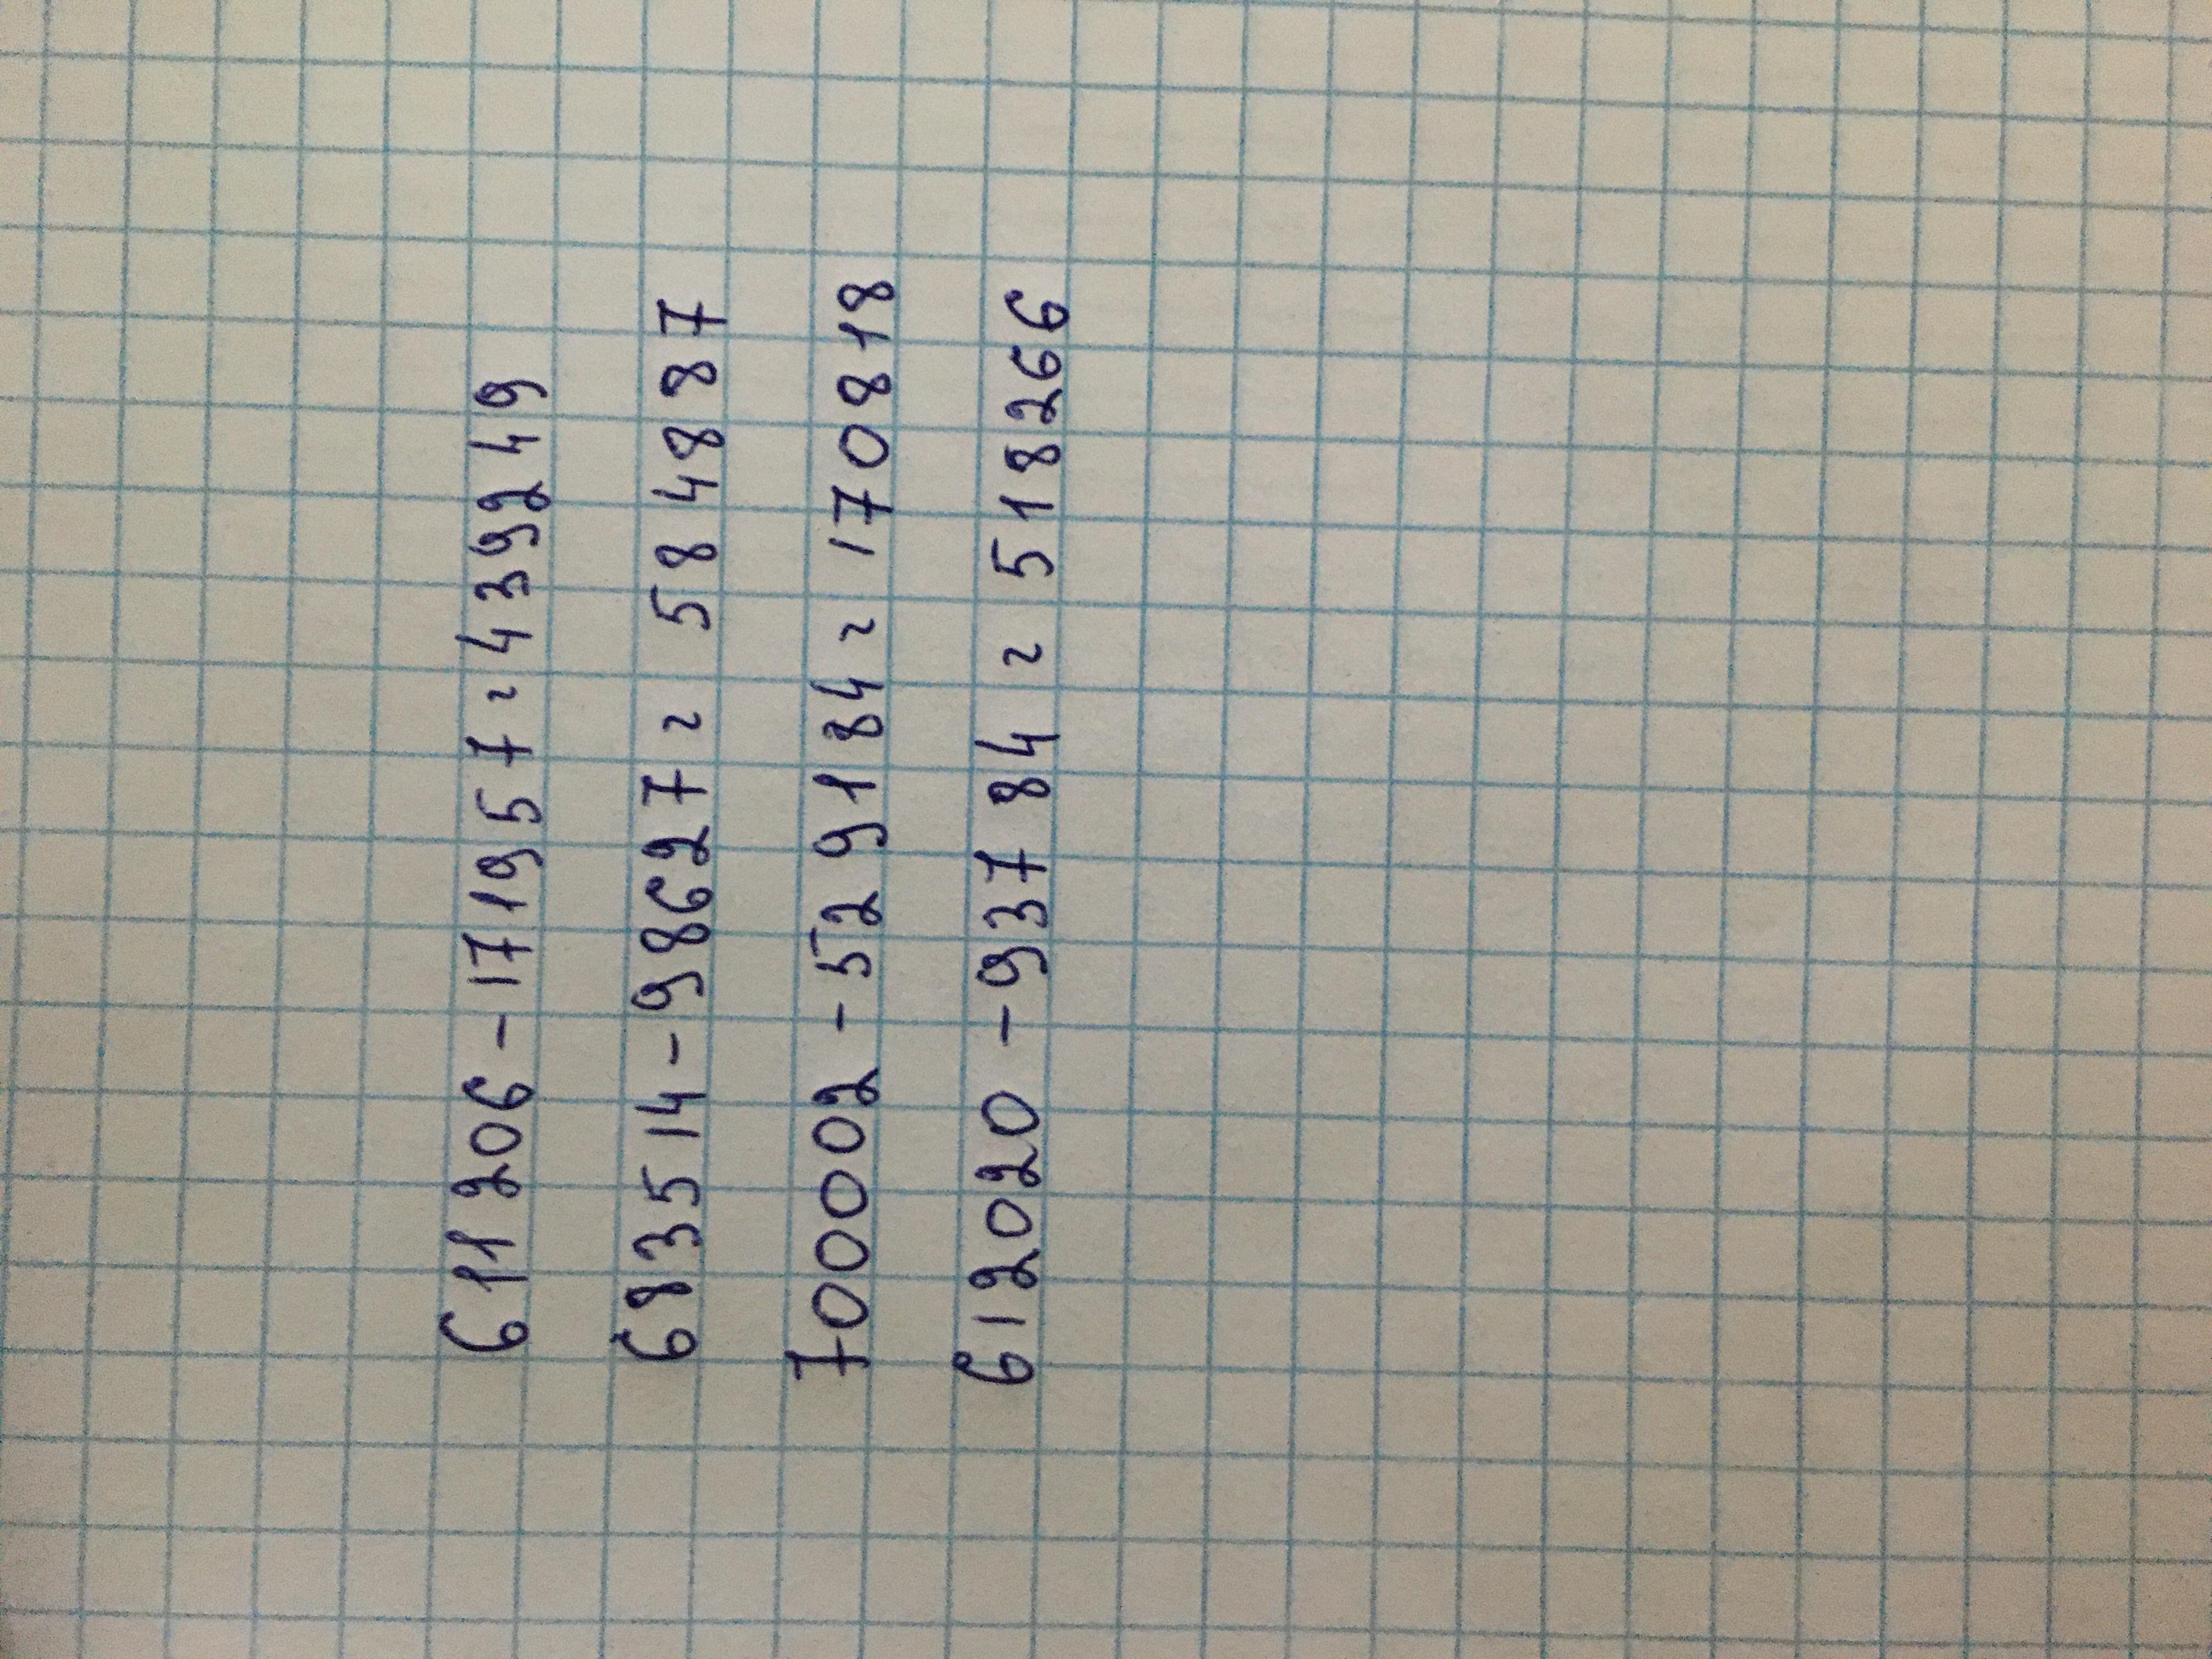 611206-171957=439249
683514-98627=584887
700002-529184=170818
612020-93784=518266